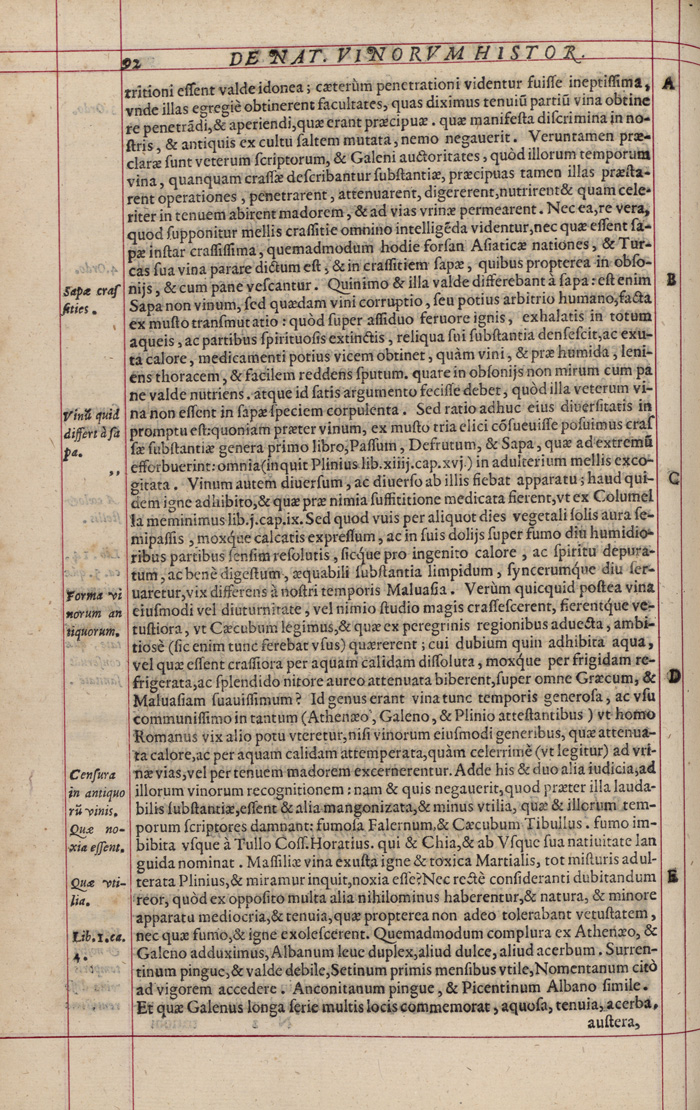 92 DE NAT. VINORVM HISTOR.
tritioni essent valde idonea; cæterùm penetrationi videntur fuisse ineptissima, A
vnde illas egregiè obtinerent facultates, quas diximus tenuiũ partiũ vina obtine
re penetrãdi, & aperiendi, quæ erant præcipuæ. quæ manifesta discrimina in no-
stris, & antiquis ex cultu saltem mutata, nemo negauerit. Veruntamen præ-
claræ sunt veterum scriptorum, & Galeni auctoritates, quòd illorum temporum
vina, quanquam crassæ describantur substantiæ, præcipuas tamen illas præsta-
rent operationes, penetrarent, attenuarent, digererent, nutrirent & quam cele-
riter in tenuem abirent madorem, & ad vias vrinæ permearent. Nec ea, re vera,
quod supponitur mellis crassitie omnino intelligẽda videntur, nec quæ essent sa-
pæ instar crassissima, quemadmodum hodie forsan Asiaticæ nationes, & Tur-
cas sua vina parare dictum est, & in crassitiem sapæ, quibus propterea in obso-
nijs, & cum pane vescantur. Quinimo & illa valde differebant à sapa: est enim B
Sapæ cras
sities.
Sapa non vinum, sed quædam vini corruptio, seu potius arbitrio humano, facta
ex musto transmutatio: quòd super assiduo feruore ignis, exhalatis in totum
aqueis, ac partibus spirituosis extinctis, reliqua sui substantia densescit, ac exu-
ta calore, medicamenti potius vicem obtinet, quàm vini, & præ humida, leni-
ens thoracem, & facilem reddens sputum. quare in obsonijs non mirum cum pa
ne valde nutriens. atque id satis argumento fecisse debet, quòd illa veterum vi-
Vinũ quid
differt à sa
pa.
na non essent in sapæ speciem corpulenta. Sed ratio adhuc eius diuersitatis in
promptu est: quoniam præter vinum, ex musto tria elici cõsueuisse posuimus cras
sæ substantiæ genera primo libro; Passum, Defrutum, & Sapa, quæ ad extremũ
,, efforbuerint: omnia (inquit Plinius lib. xiiij. cap. xvj.) in adulterium mellis exco-
gitata. Vinum autem diuersum, ac diuerso ab illis fiebat apparatu; haud qui- C
dem igne adhibito, & quæ præ nimia suffititione medicata fierent, vt ex Columel
la meminimus lib. j. cap. ix. Sed quod vuis per aliquot dies vegetali solis aura se-
mipassis, moxque calcatis expressum, ac in suis dolijs super fumo diu humidio-
ribus partibus sensim resolutis, sicque pro ingenito calore, ac spiritu depura-
tum, ac benè digestum, æquabili substantia limpidum, syncerumque diu ser-
Forma vi
norum an
tiquorum.
uaretur, vix differens à nostri temporis Maluasia. Verùm quicquid postea vina
eiusmodi vel diuturnitate, vel nimio studio magis crassescerent, fierentque ve-
tustiora, vt Cæcubum legimus, & quæ ex peregrinis regionibus aduecta, ambi-
tiosè (sic enim tunc ferebat vsus) quærerent; cui dubium quin adhibita aqua,
vel quæ essent crassiora per aquam calidam dissoluta, moxque per frigidam re-
frigerata, ac splendido nitore aureo attenuata biberent, super omne Græcum, & D
Maluasiam suauissimum? Id genus erant vina tunc temporis generosa, ac vsu
communissimo in tantum (Athenæo, Galeno, & Plinio attestantibus) vt homo
Romanus vix alio potu vteretur, nisi vinorum eiusmodi generibus, quæ attenua-
ta calore, ac per aquam calidam attemperata, quàm celerrimè (vt legitur) ad vri-
Censura
in antiquo
rũ vinis.
næ vias, vel per tenuem madorem excernerentur. Adde his & duo alia iudicia, ad
illorum vinorum recognitionem: nam & quis negauerit, quod præter illa lauda-
bilis substantiæ, essent & alia mangonizata, & minus vtilia, quæ & illorum tem-
Quæ no-
xia essent.
porum scriptores damnant: fumosa Falernum, & Cæcubum Tibullus. fumo im-
bibita vsque à Tullo Coss. Horatius. qui & Chia, & ab Vsque sua natiuitate lan
guida nominat. Massiliæ vina exusta igne & toxica Martialis, tot misturis adul-
Quæ vti-
lia.
terata Plinius, & miramur inquit, noxia esse? Nec rectè consideranti dubitandum E
reor, quòd ex opposito multa alia nihilominus haberentur, & natura, & minore
apparatu mediocria, & tenuia, quæ propterea non adeo tolerabant vetustatem,
Lib. 1. ca.
4.
nec quæ fumo, & igne exolescerent. Quemadmodum complura ex Athenæo, &
Galeno adduximus, Albanum leue duplex, aliud dulce, aliud acerbum. Surren-
tinum pingue, & valde debile, Setinum primis mensibus vtile, Nomentanum citò
ad vigorem accedere. Anconitanum pingue, & Picentinum Albano simile.
Et quæ Galenus longa serie multis locis commemorat, aquosa, tenuia, acerba,
austera,